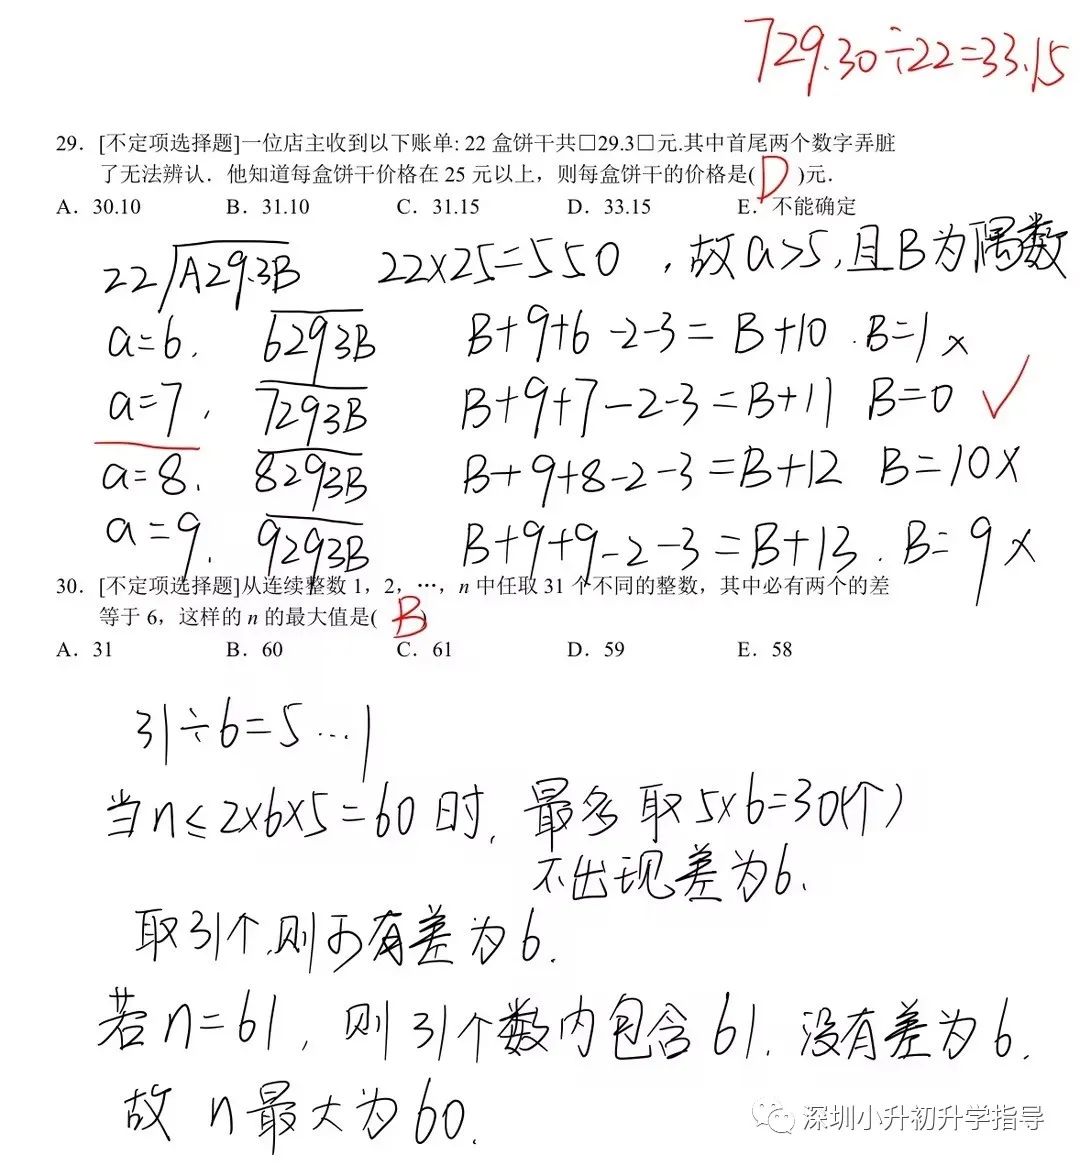 729.30÷22=33.15
29．[不定项选择题]一位店主收到以下账单: 22 盒饼干共□29.3□元.其中首尾两个数字弄脏
了无法辨认．他知道每盒饼干价格在 25 元以上，则每盒饼干的价格是( D )元．
A．30.10 B．31.10 C．31.15 D．33.15 E．不能确定
22 A29.3B 22×25=550 ，故a>5，且B为偶数
a=6. 6293B B+9+6-2-3=B+10 . B=1 ×
a=7, 7293B B+9+7-2-3=B+11 B=0 ✓
a=8. 8293B B+9+8-2-3=B+12 B=10×
a=9. 9293B B+9+9-2-3=B+13. B=9×
30．[不定项选择题]从连续整数 1，2，…，n 中任取 31 个不同的整数，其中必有两个的差
等于 6，这样的 n 的最大值是( B )
A．31 B．60 C．61 D．59 E．58
31÷6=5…1
当n≤2×6×5=60时, 最多取5×6=30(个)
不出现差为6.
取31个,则 有差为6.
若n=61, 则31个数内包含61. 没有差为6.
故n最大为60.
深圳小升初升学指导